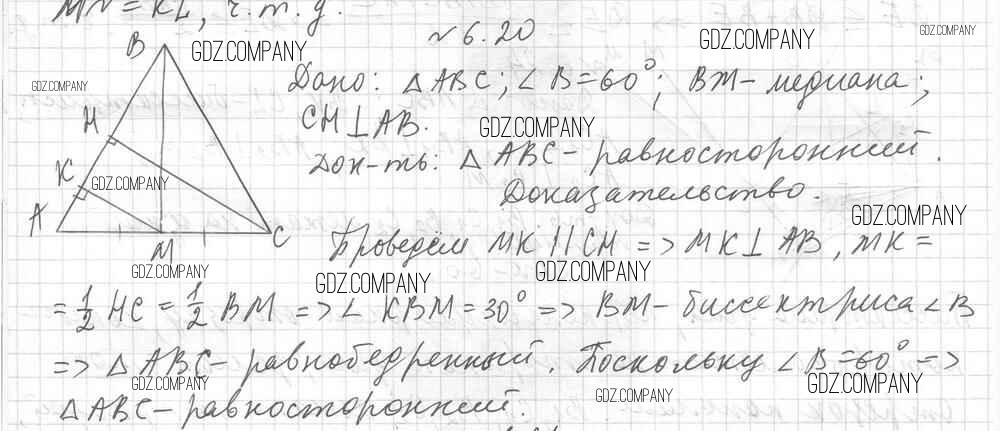 MN = KL, ч.т.д.
№ 6.20
Дано: △ABC; ∠B=60°; BM - медиана;
CH⊥AB.
Док-ть: △ABC - равносторонний.
Доказательство.
Проведём MK || CH => MK⊥AB, MK =
= 1/2 HC = 1/2 BM => ∠KBM = 30° => BM - биссектриса ∠B
=> △ABC - равнобедренный. Поскольку ∠B=60° =>
△ABC - равносторонний.
B
H
K
A
M
C
GDZ.COMPANY
GDZ.COMPANY
GDZ.COMPANY
GDZ.COMPANY
GDZ.COMPANY
GDZ.COMPANY
GDZ.COMPANY
GDZ.COMPANY
GDZ.COMPANY
GDZ.COMPANY
GDZ.COMPANY
GDZ.COMPANY
GDZ.COMPANY